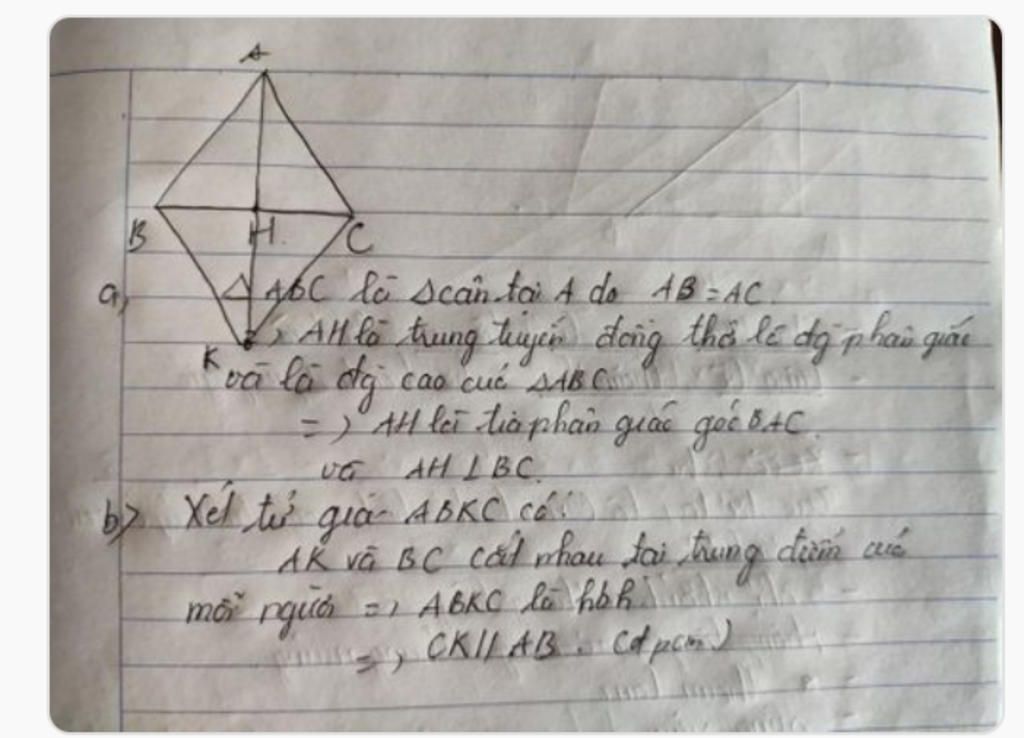 A
B
H
C
K
a, Δ ABC là Δ cân tại A do AB = AC.
=> AH là trung tuyến đồng thời là đg phân giác
và là đg cao của ΔABC
=> AH là tia phân giác góc BAC.
và AH ⊥ BC.
b> Xét tứ giác ABKC có:
AK và BC cắt nhau tại trung điểm của
mỗi người => ABKC là hbh.
=> CK // AB. (đpcm)